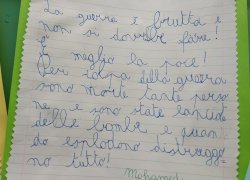 La guerra è brutta e
non si dovrebbe fare!
È
meglio la pace!
Per colpa della guerra
sono morte tante perso
ne e sono state lanciate
delle bombe e quan
do esplodono distruggo
no tutto!
Mohamed